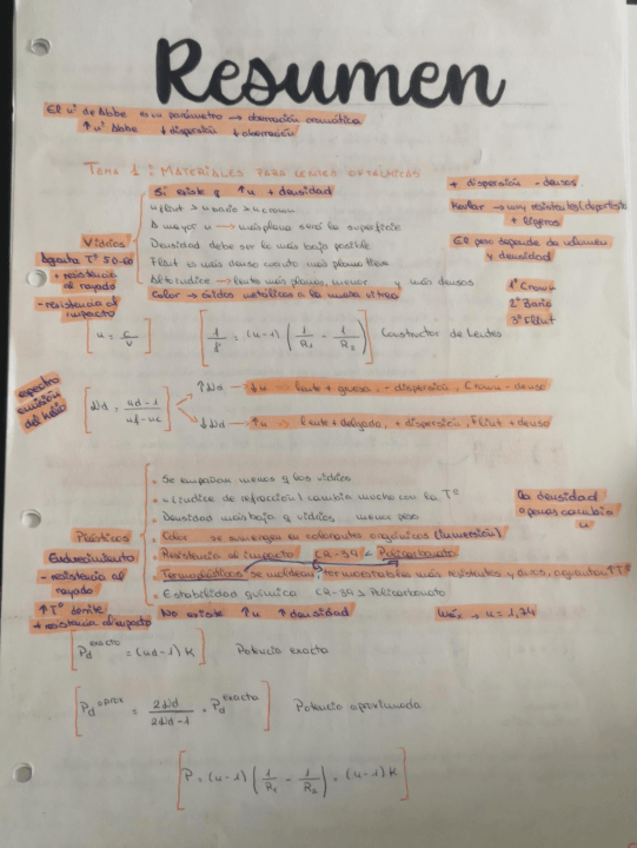 Resumen
El nº de Abbe es un parámetro → aberración cromática
↑ nº Abbe ↓ dispersión ↓ aberración
TEMA 1: MATERIALES PARA LENTES OFTÁLMICAS
Si existe q ↑n + densidad
n flint > n bario > n crown
A mayor n → más plana será la superficie
Vidrios
Densidad debe ser lo más bajo posible
Flint es más denso cuanto más plomo lleve
Alto índice → lente más planas, menor y más densos
Color → óxidos metálicos a la masa vítrea
Aguanta Tº 50-60
+ resistencia al rayado
- resistencia al impacto
+ dispersión - densos
Kevlar → muy resistentes (deportistas
+ ligeros
El peso depende de volumen y densidad
1º Crown
2º Bario
3º Flint
[n = c/v]
[1/f' = (n-1) (1/R1 - 1/R2)] Constructor de Lentes
espectro emisión del helio
[νd = nd-1 / nf-nc]
↑νd → ↓n → lente + gruesa, - dispersión, Crown - denso
↓νd → ↑n → lente + delgada, + dispersión, Flint + denso
Plásticos
• Se empañan menos q los vidrios
• n (índice de refracción) cambia mucho con la Tº
• Densidad más baja q vidrios menor peso
• Color se sumergen en colorantes orgánicos (inmersión)
• Resistencia al impacto CR-39 < Policarbonato
• Termoplásticos se moldean, termoestables más resistentes y duros, aguantan ↑Tº
• Estabilidad química CR-39 > Policarbonato
No existe ↑n ↑densidad
Máx → n = 1,74
la densidad apenas cambia n
Endurecimiento
- resistencia al rayado
↑Tº derrite
+ resistencia al impacto
[Pd exacto = (nd-1) K] Potencia exacta
[Pd aprox = 2νd / 2νd-1 · Pd exacta] Potencia aproximada
[P = (n-1) (1/R1 - 1/R2) = (n-1) K]